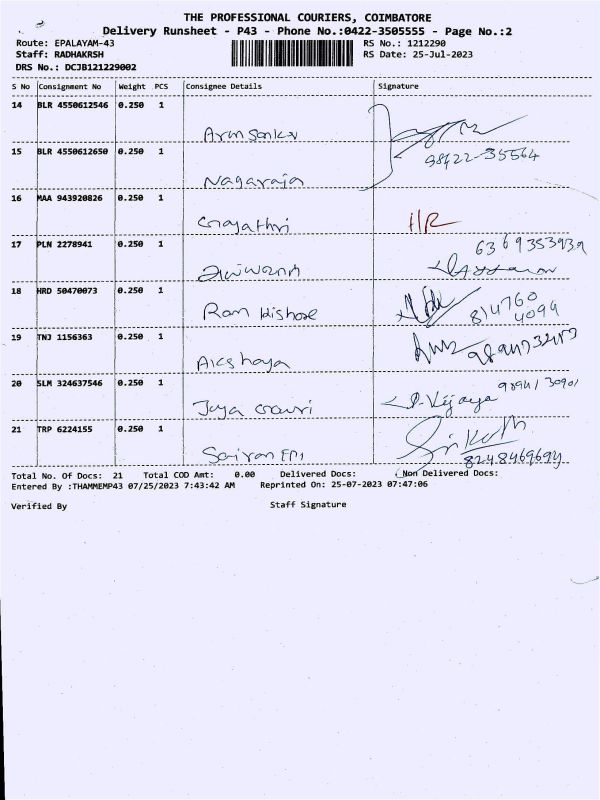 THE PROFESSIONAL COURIERS, COIMBATORE
Delivery Runsheet - P43 - Phone No.:0422-3505555 - Page No.:2
Route: EPALAYAM-43 RS No.: 1212290
Staff: RADHAKRSH RS Date: 25-Jul-2023
DRS No.: DCJB121229002
S No Consignment No Weight PCS Consignee Details Signature
14 BLR 4550612546 0.250 1
Arun Sankar
15 BLR 4550612650 0.250 1 98422-35564
Nagaraja
16 MAA 943920826 0.250 1
Gayathri HR
17 PLN 2278941 0.250 1 6369353939
18 HRD 50470073 0.250 1
Ram Kishore 814760
4099
19 TNJ 1156363 0.250 1
Akshaya
20 SLM 324637546 0.250 1
Jaya Gowri P. Vijaya
21 TRP 6224155 0.250 1
Sairam EPI
8248469694
Total No. Of Docs: 21 Total COD Amt: 0.00 Delivered Docs: Non Delivered Docs:
Entered By :THAMMEMP43 07/25/2023 7:43:42 AM Reprinted On: 25-07-2023 07:47:06
Verified By Staff Signature